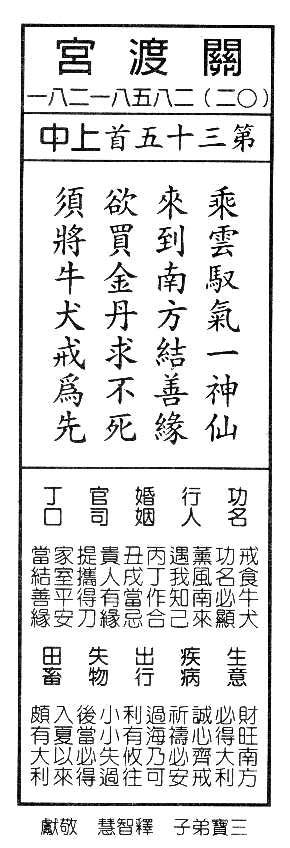 關渡宮
(〇二)二八五八一二八一
第三十五首上中
乘雲馭氣一神仙
來到南方結善緣
欲買金丹求不死
須將牛犬戒爲先
功名
戒食牛犬
功名必顯
行人
薰風南來
遇我知己
婚姻
丙丁作合
丑戌當忌
官司
貴人有緣
提攜得刀
丁口
家室平安
當結善緣
生意
財旺南方
必得大利
疾病
誠心齊戒
祈禱必安
出行
過海乃可
利有攸往
失物
小小失過
後當必得
田畜
入夏以來
頗有大利
三寶弟子 釋智慧 敬獻